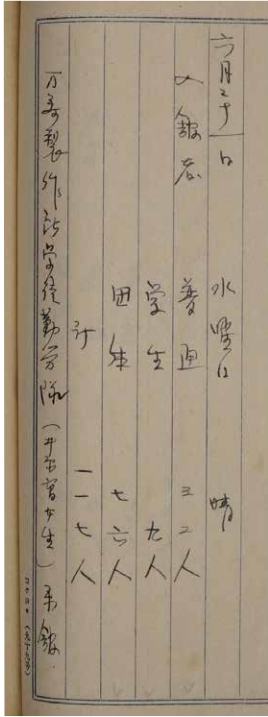 六月二十一日 水曜日 晴
入館者 普通 三二人
学生 九人
団体 七六人
計 一一七人
万寿製作所学徒勤労隊（ 女生）来館
コクヨ